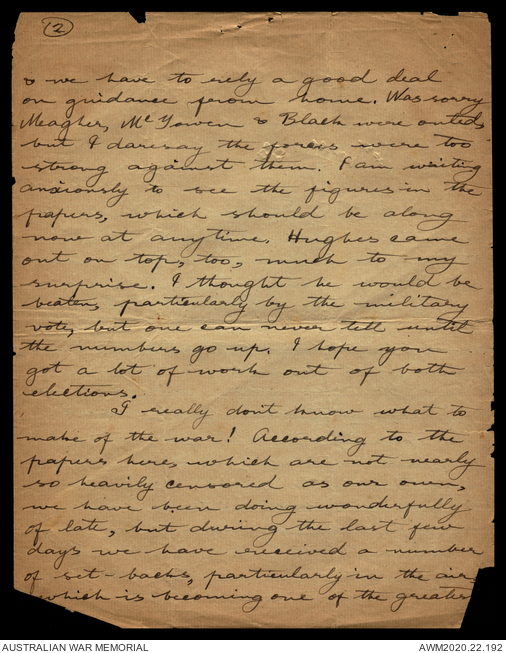 2
& we have to rely a good deal
on guidance from home. Was sorry
Meagher, McGowen & Black were outed,
but I daresay the forces were too
strong against them. I am waiting
anxiously to see the figures in the
papers, which should be along
now at anytime. Hughes came
out on top, too, much to my
surprise. I thought he would be
beaten, particularly by the military
vote, but one can never tell until
the numbers go up. I hope you
got a lot of work out of both
elections.
I really don't know what to
make of the war! According to the
papers here, which are not nearly
so heavily censored as our own,
we have been doing wonderfully
of late, but during the last few
days we have received a number
of set-backs, particularly in the air,
which is becoming one of the greatest
AUSTRALIAN WAR MEMORIAL
AWM2020.22.192